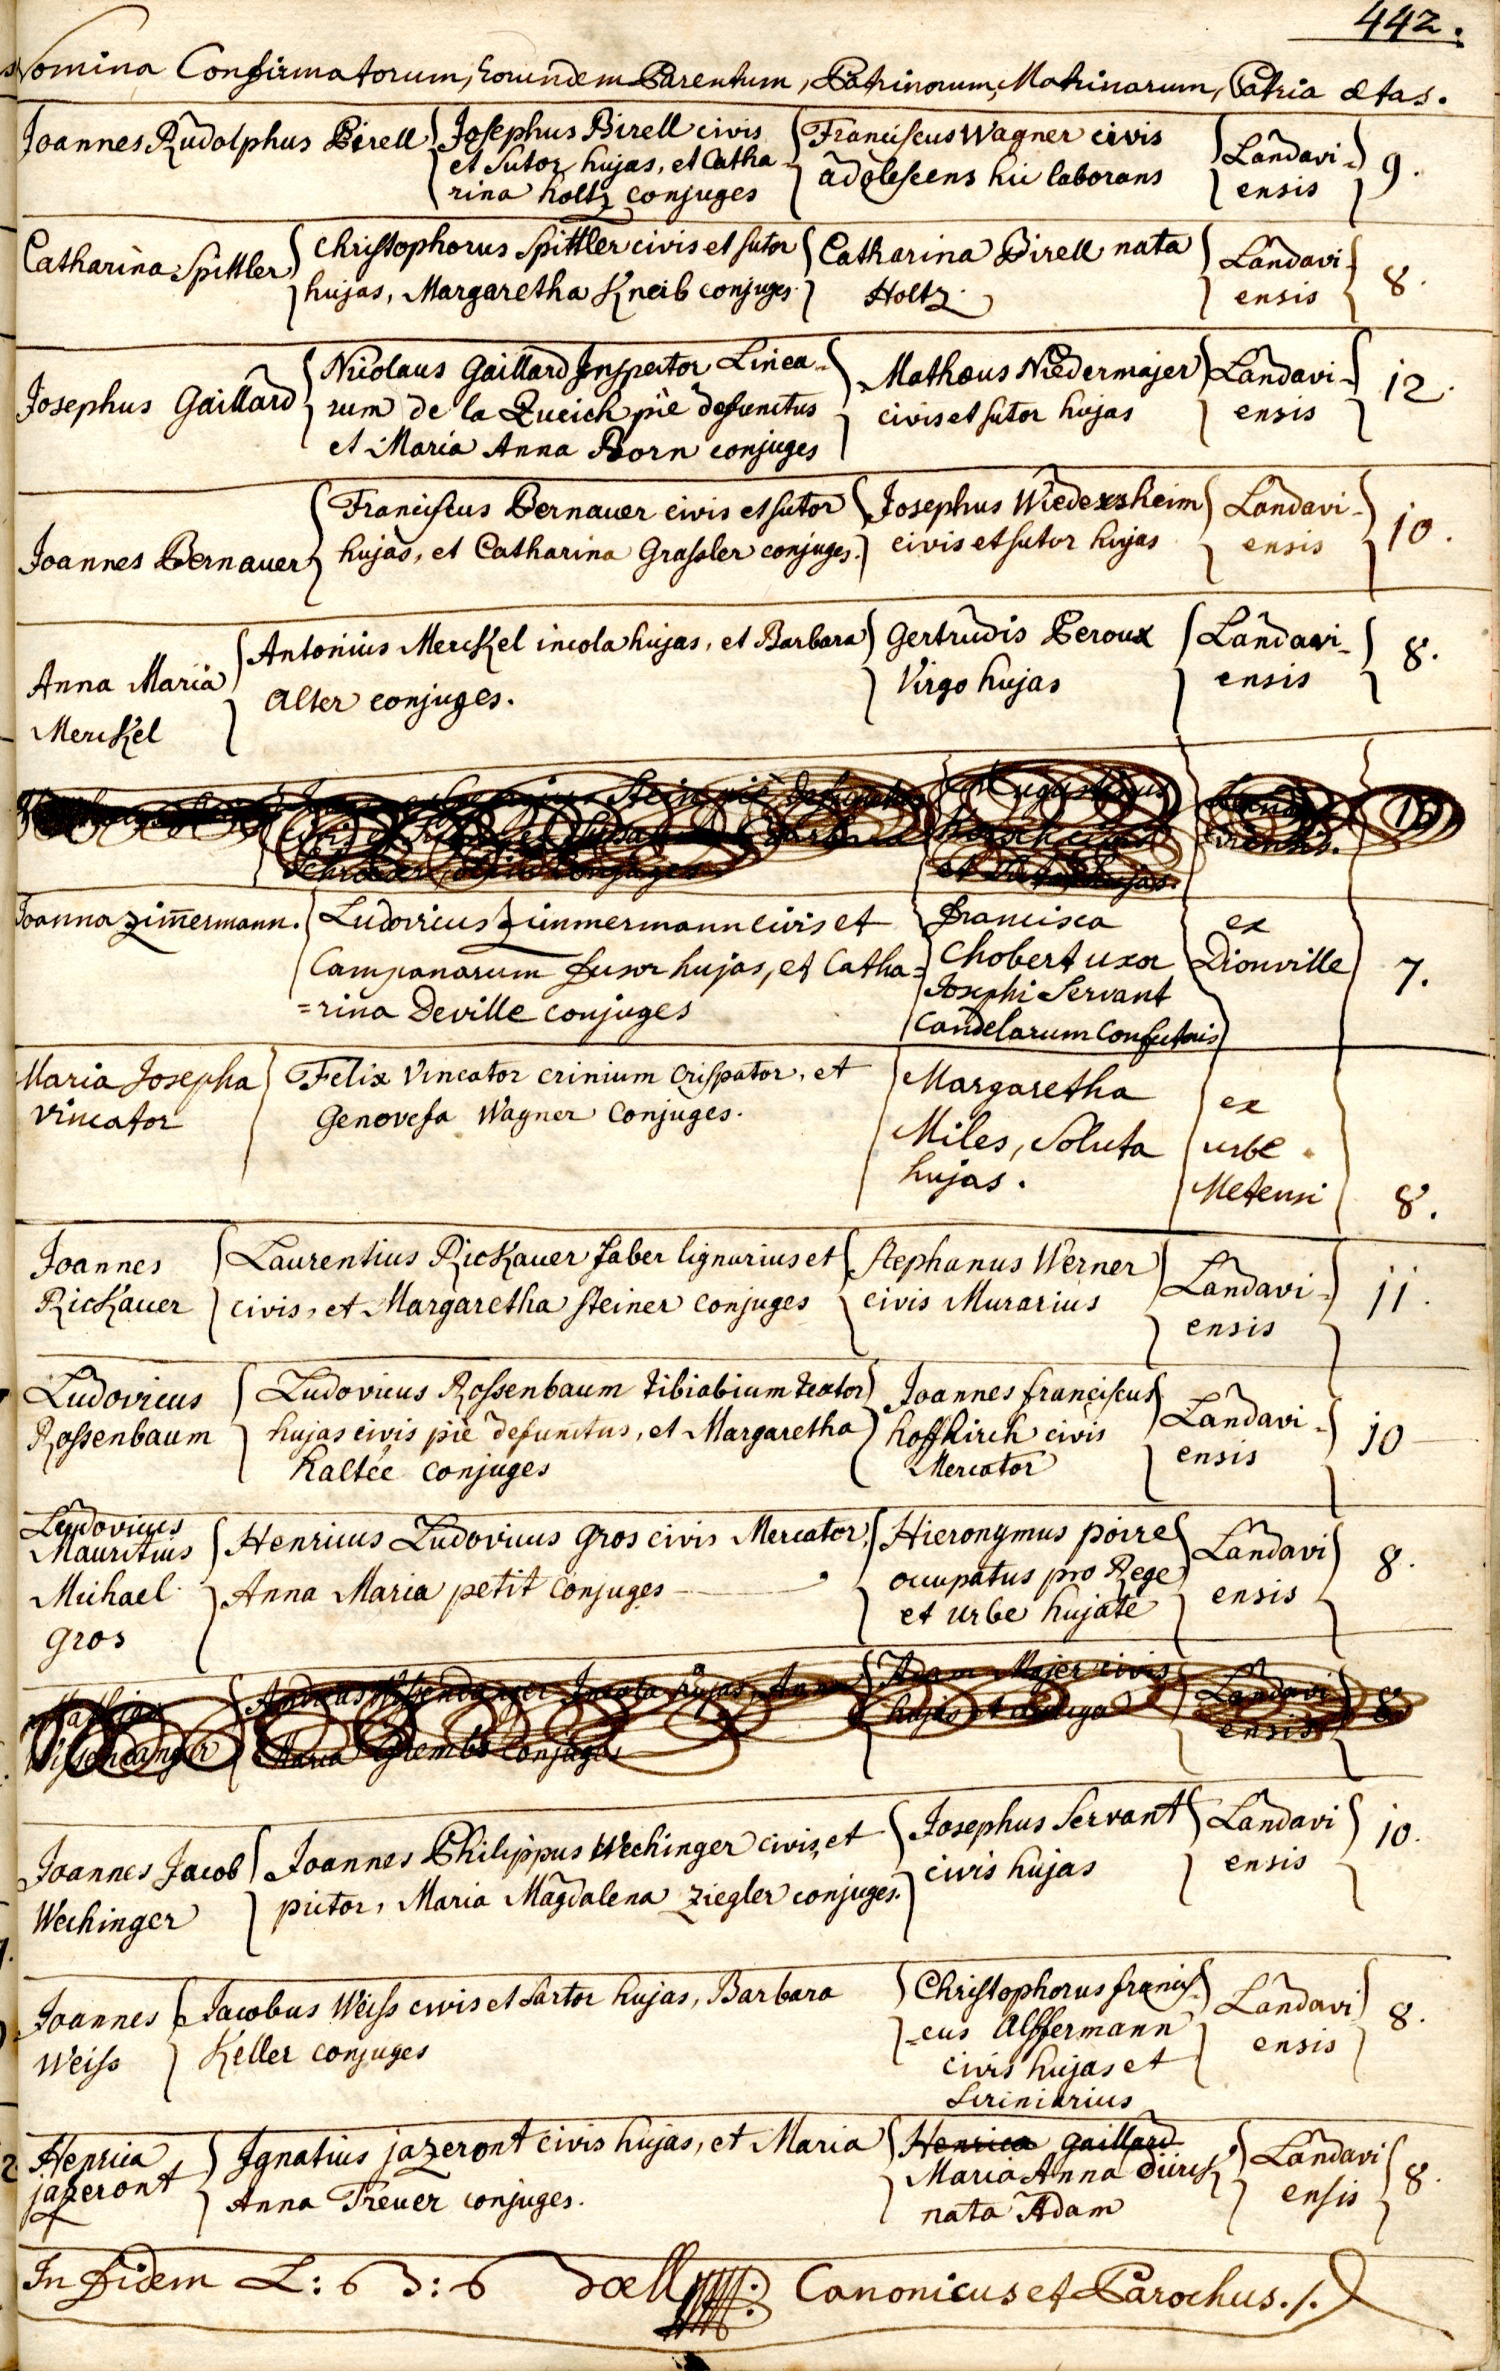 442.
Nomina Confirmatorum, Eorundem Parentum, Patrinorum, Matrinarum, Patria ætas.
Joannes Rudolphus Birell
Josephus Birell civis
et sutor hujas, et Catha
rina holtz conjuges
Franciscus Wagner civis
adolescens hic laborans
Landavi-
ensis
9.
Catharina Spittler
Christophorus Spittler civis et sutor
hujas, Margaretha Kneib conjuges.
Catharina Birell nata
Holtz.
Landavi
ensis
8.
Josephus Gaillard
Nicolaus Gaillard Inspector Linea-
rum de la Queich piè defunctus
et Maria Anna Born conjuges
Mathæus Niedermajer
civis et sutor hujas
Landavi-
ensis
12.
Joannes Bernauer
Franciscus Bernauer civis et sutor
hujas, et Catharina Grassler conjuges.
Josephus Wiedersheim
civis et sutor hujas
Landavi-
ensis
10.
Anna Maria
Merckel
Antonius Merckel incola hujas, et Barbara
Alter conjuges.
Gertrudis Peroux
Virgo hujas
Landavi-
ensis
8.
Stein piè defunctus
Augustinus
et hujas
Joanna Zim̄ermann.
Ludovicus Zimmermann civis et
Campanarum fusor hujas, et Catha=
=rina Deville conjuges
Francisca
Chobert uxor
Josephi Servant
Candelarum Confectoris
ex
Dionville
7.
Maria Josepha
Vincator
Felix Vincator crinium crispator, et
Genovefa Wagner Conjuges.
Margaretha
Miles, Soluta
hujas.
ex
urbe
Metensi
8.
Joannes
Rickauer
Laurentius Rickauer faber lignarius et
civis, et Margaretha Steiner conjuges
Stephanus Werner
civis Murarius
Landavi-
ensis
11.
Ludovicus
Rossenbaum
Ludovicus Rossenbaum tibialium textor
hujas civis piè defunctus, et Margaretha
Kaltée conjuges
Joannes franciscus
hoffkirch civis
Mercator
Landavi-
ensis
10
Ludovicus
Mauritius
Michael
Gros
Henricus Ludovicus Gros civis Mercator,
Anna Maria petit conjuges
Hieronymus poire
occupatus pro Rege
et urbe hujate
Landavi
ensis
8.
Mathias
Andreas Incola hujas, Anna
Maria conjuges
Adam Majer civis
hujas et
Landavi
ensis
8
Joannes Jacob
Wechinger
Joannes Philippus Wechinger civis, et
pictor, Maria Magdalena Ziegler conjuges.
Josephus Servant
civis hujas
Landavi
ensis
10.
Joannes
Weiss
Jacobus Weiss civis et Sartor hujas, Barbara
Keller conjuges
Christophorus francis-
-cus Alffermann
civis hujas et
Scriniarius
Landavi
ensis
8.
Henrica
jazeront
Ignatius jazeront civis hujas, et Maria
Anna Treuer conjuges.
Henrica Gaillard
Maria Anna
nata Adam
Landavi
ensis
8.
In fidem Canonicus et Parochus.